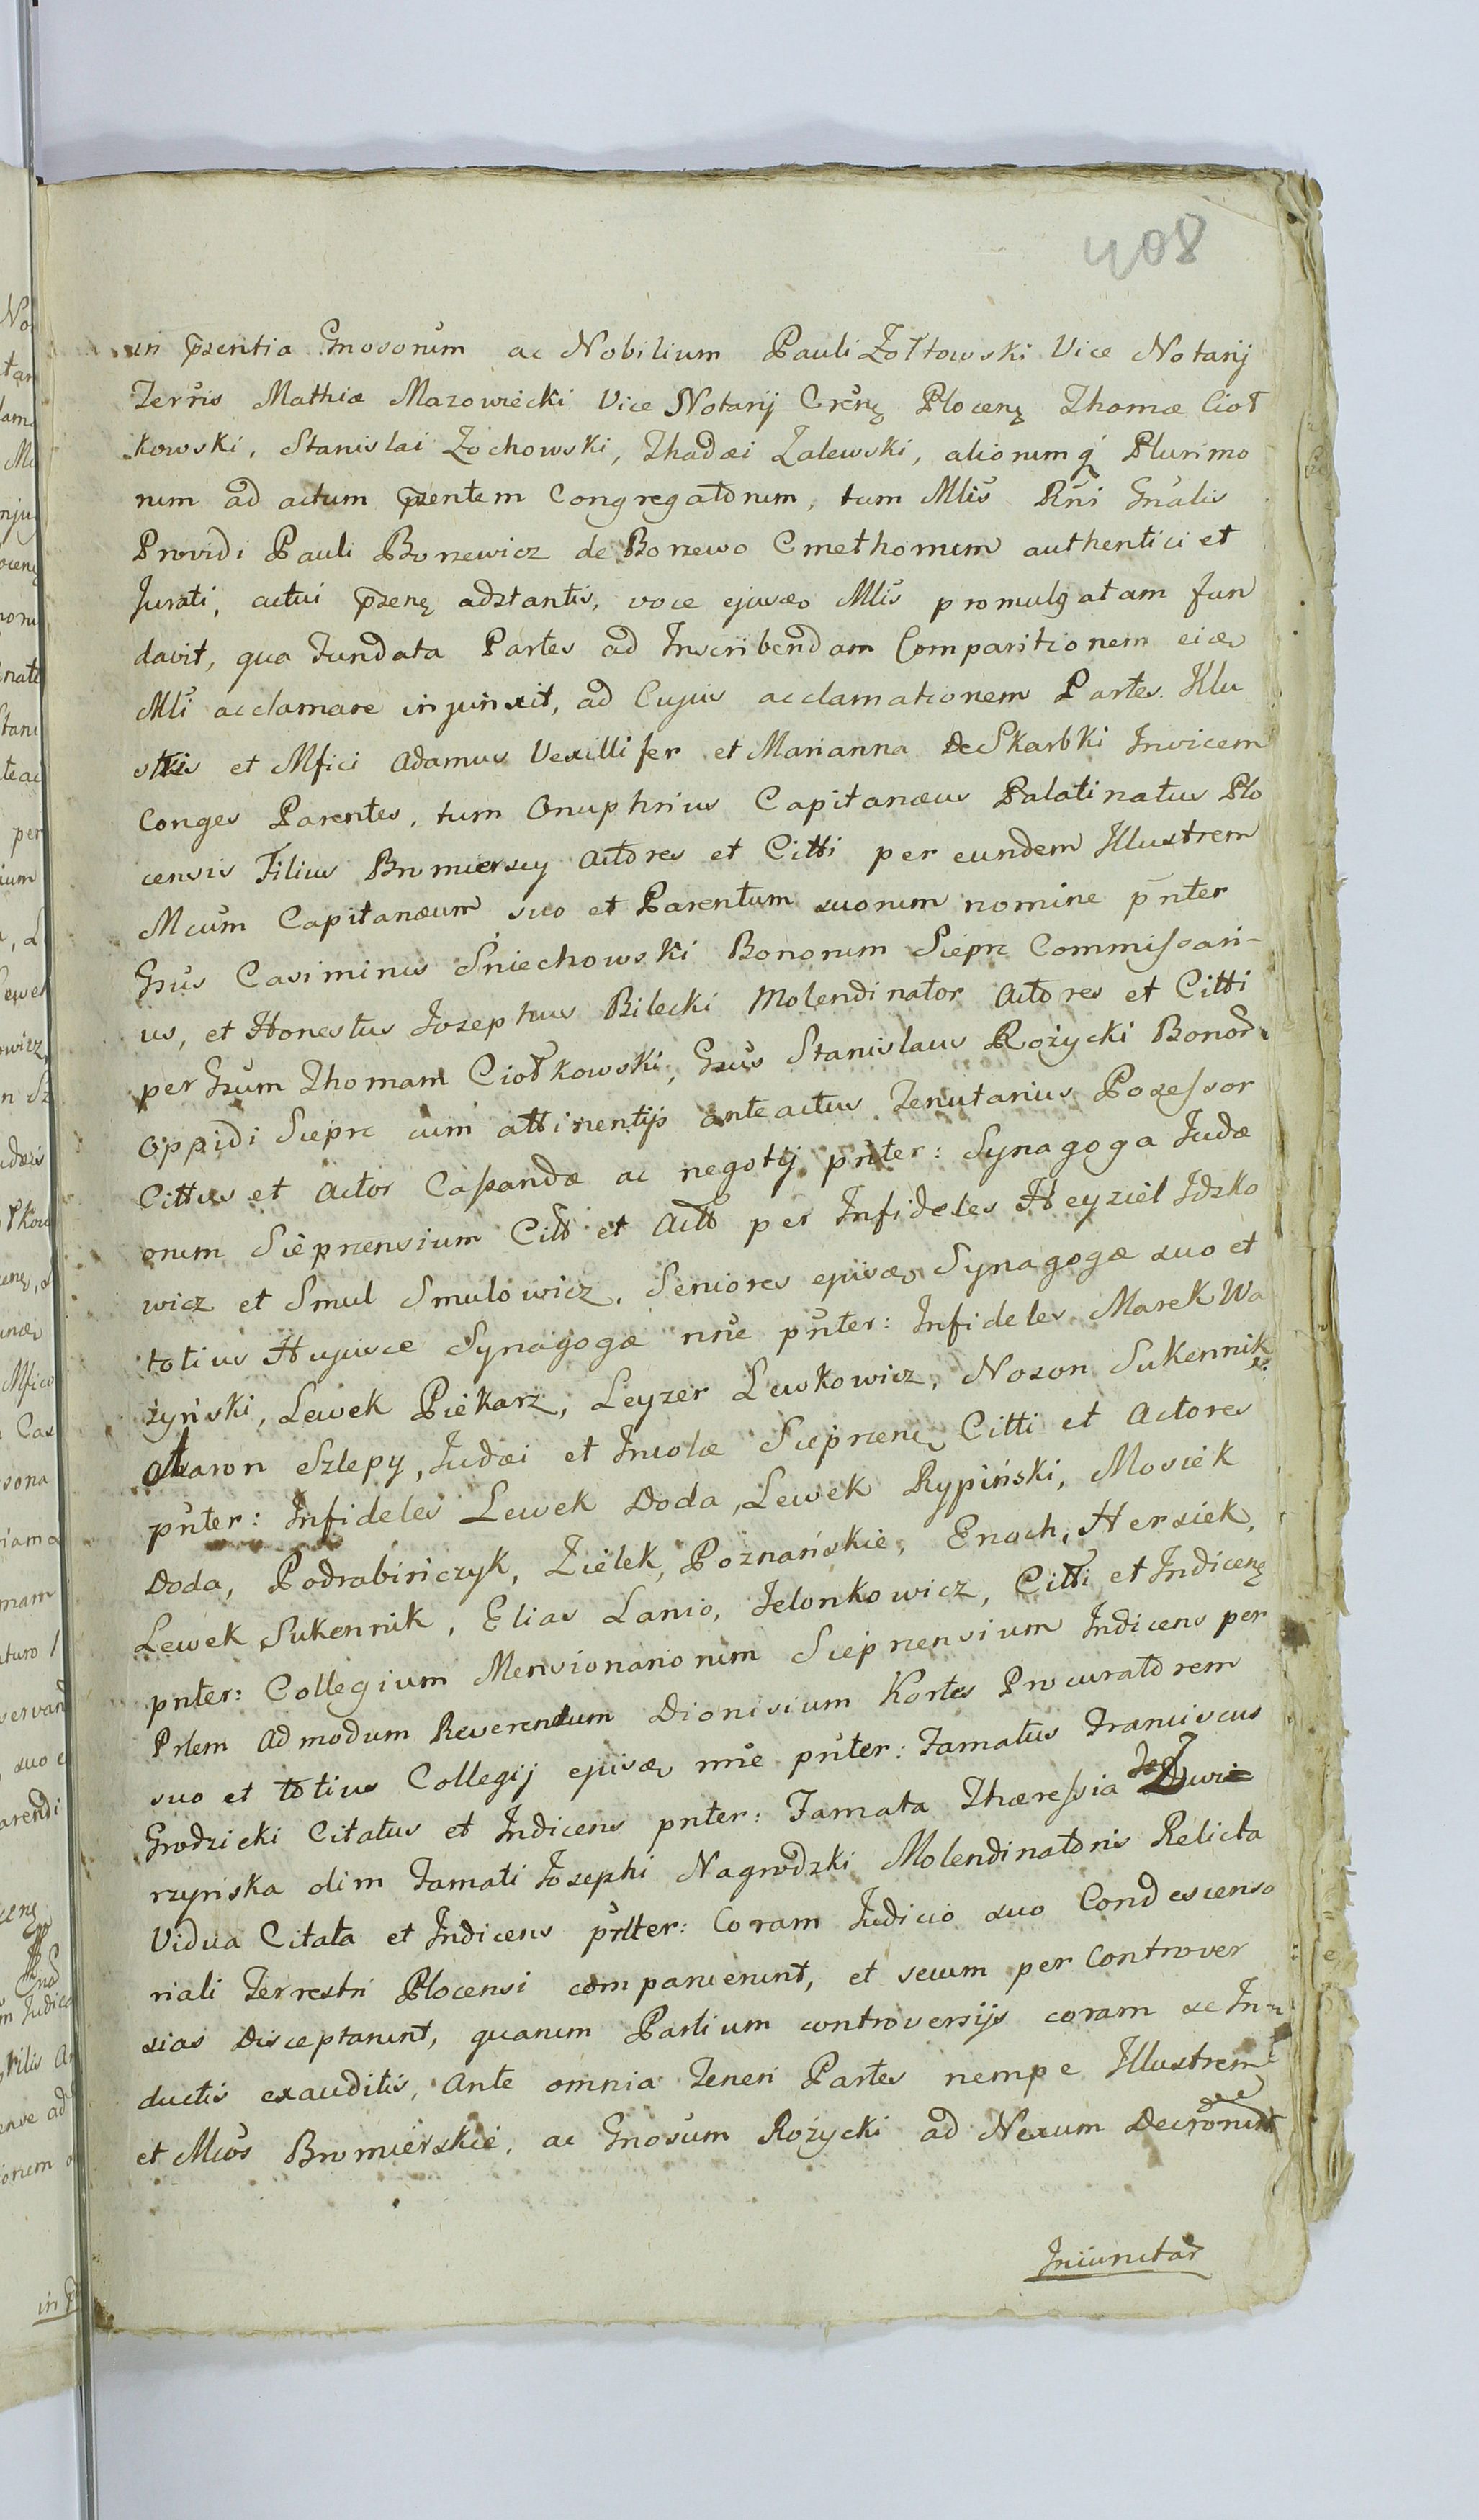 408
in p̄sentia Gnosorum ac Nobilium Pauli Zołtowski Vice Notarij
Terris Mathiæ Mazowiecki Vice Notarij Crēnę Plocenę Thomæ Cioł
kowski, Stanislai Zochowski, Thadæi Zalewski, aliorumq́ Plurimo
rum ad actum p̄sentem Congregatorum, tum Mlis Rn̄i Gn̄alis
Providi Pauli Borzewicz de Borzewo Cmethonum authentici et
Jurati, actui p̄senę adstantis, voce ejusd Mlis promulgatam fun
davit, qua Fundata Partes ad Inscribendam Comparitionem eid
Mli acclamare injunxit, ad Cujus acclamationem Partes Illu
stris et Mfici Adamus Vexillifer et Marianna de Skarbki Invicem
Conges Parentes, tum Onuphrius Capitanæus Palatinatus Plo
censis Filius Bromierscy Actores et Citti per eundem Illustrem
Mcum Capitanæum suo et Parentum suorum nomine p̄nter
Gsus Casimirus Sniechowski Bonorum Sieprc Commissari-
us, et Honestus Josephus Bilecki Molendinator Actores et Citti
per Gsum Thomam Ciołkowski, Gsus Stanislaus Rożycki Bonor
Oppidi Sieprc cum attinentijs anteactus Tenutarius Possessor
Cittus et Actor Cassandæ ac negotij pn̄ter: Synagoga Judæ
orum Sieprcensium Citt et Act per Infideles Heyziel Idzko
wicz et Smul Smulowicz, Seniores ejusd Synagogæ suo et
totius Hujusce Synagogæ nn̄e pn̄ter: Infideles Marek Wa
żyński, Lewek Piekarz, Leyzer Lewkowicz, Noson Sukennik
Aaron Szlepy, Judæi et Incolæ Sieprcenę Citti et Actores
pn̄ter: Infideles Lewek Doda, Lewek Rypiński, Mosiek
Doda, Podrabińczyk, Zielek, Poznańskie, Enoch, Hersiek,
Lewek Sukennik, Elias Lanio, Jelonkowicz, Citti et Indicenę
pnter: Collegium Mensionariorum Sieprcensium Indicens per
Prlem Admodum Reverendum Dionisium Kortes Procuratorem
suo et totius Collegij ejusd nn̄e pn̄ter: Famatus Franciscus
Grodzicki Citatus et Indicens pnter: Famata Thæressia de Zwie
rzyńska olim Famati Josephi Nagrodzki Molendinatoris Relicta
Vidua Citata et Indicens pn̄ter: Coram Judicio suo Condescenso
riali Terrestri Plocensi comparuerunt, et secum per Controver
sias Disceptarunt, quarum Partium controversijs coram se In-
ductis exauditis, Ante omnia Teneri Partes nempe Illustrem
et Mcos Bromierskie, ac Gnosum Rożycki ad Nexum Decrorum
Iniunctar